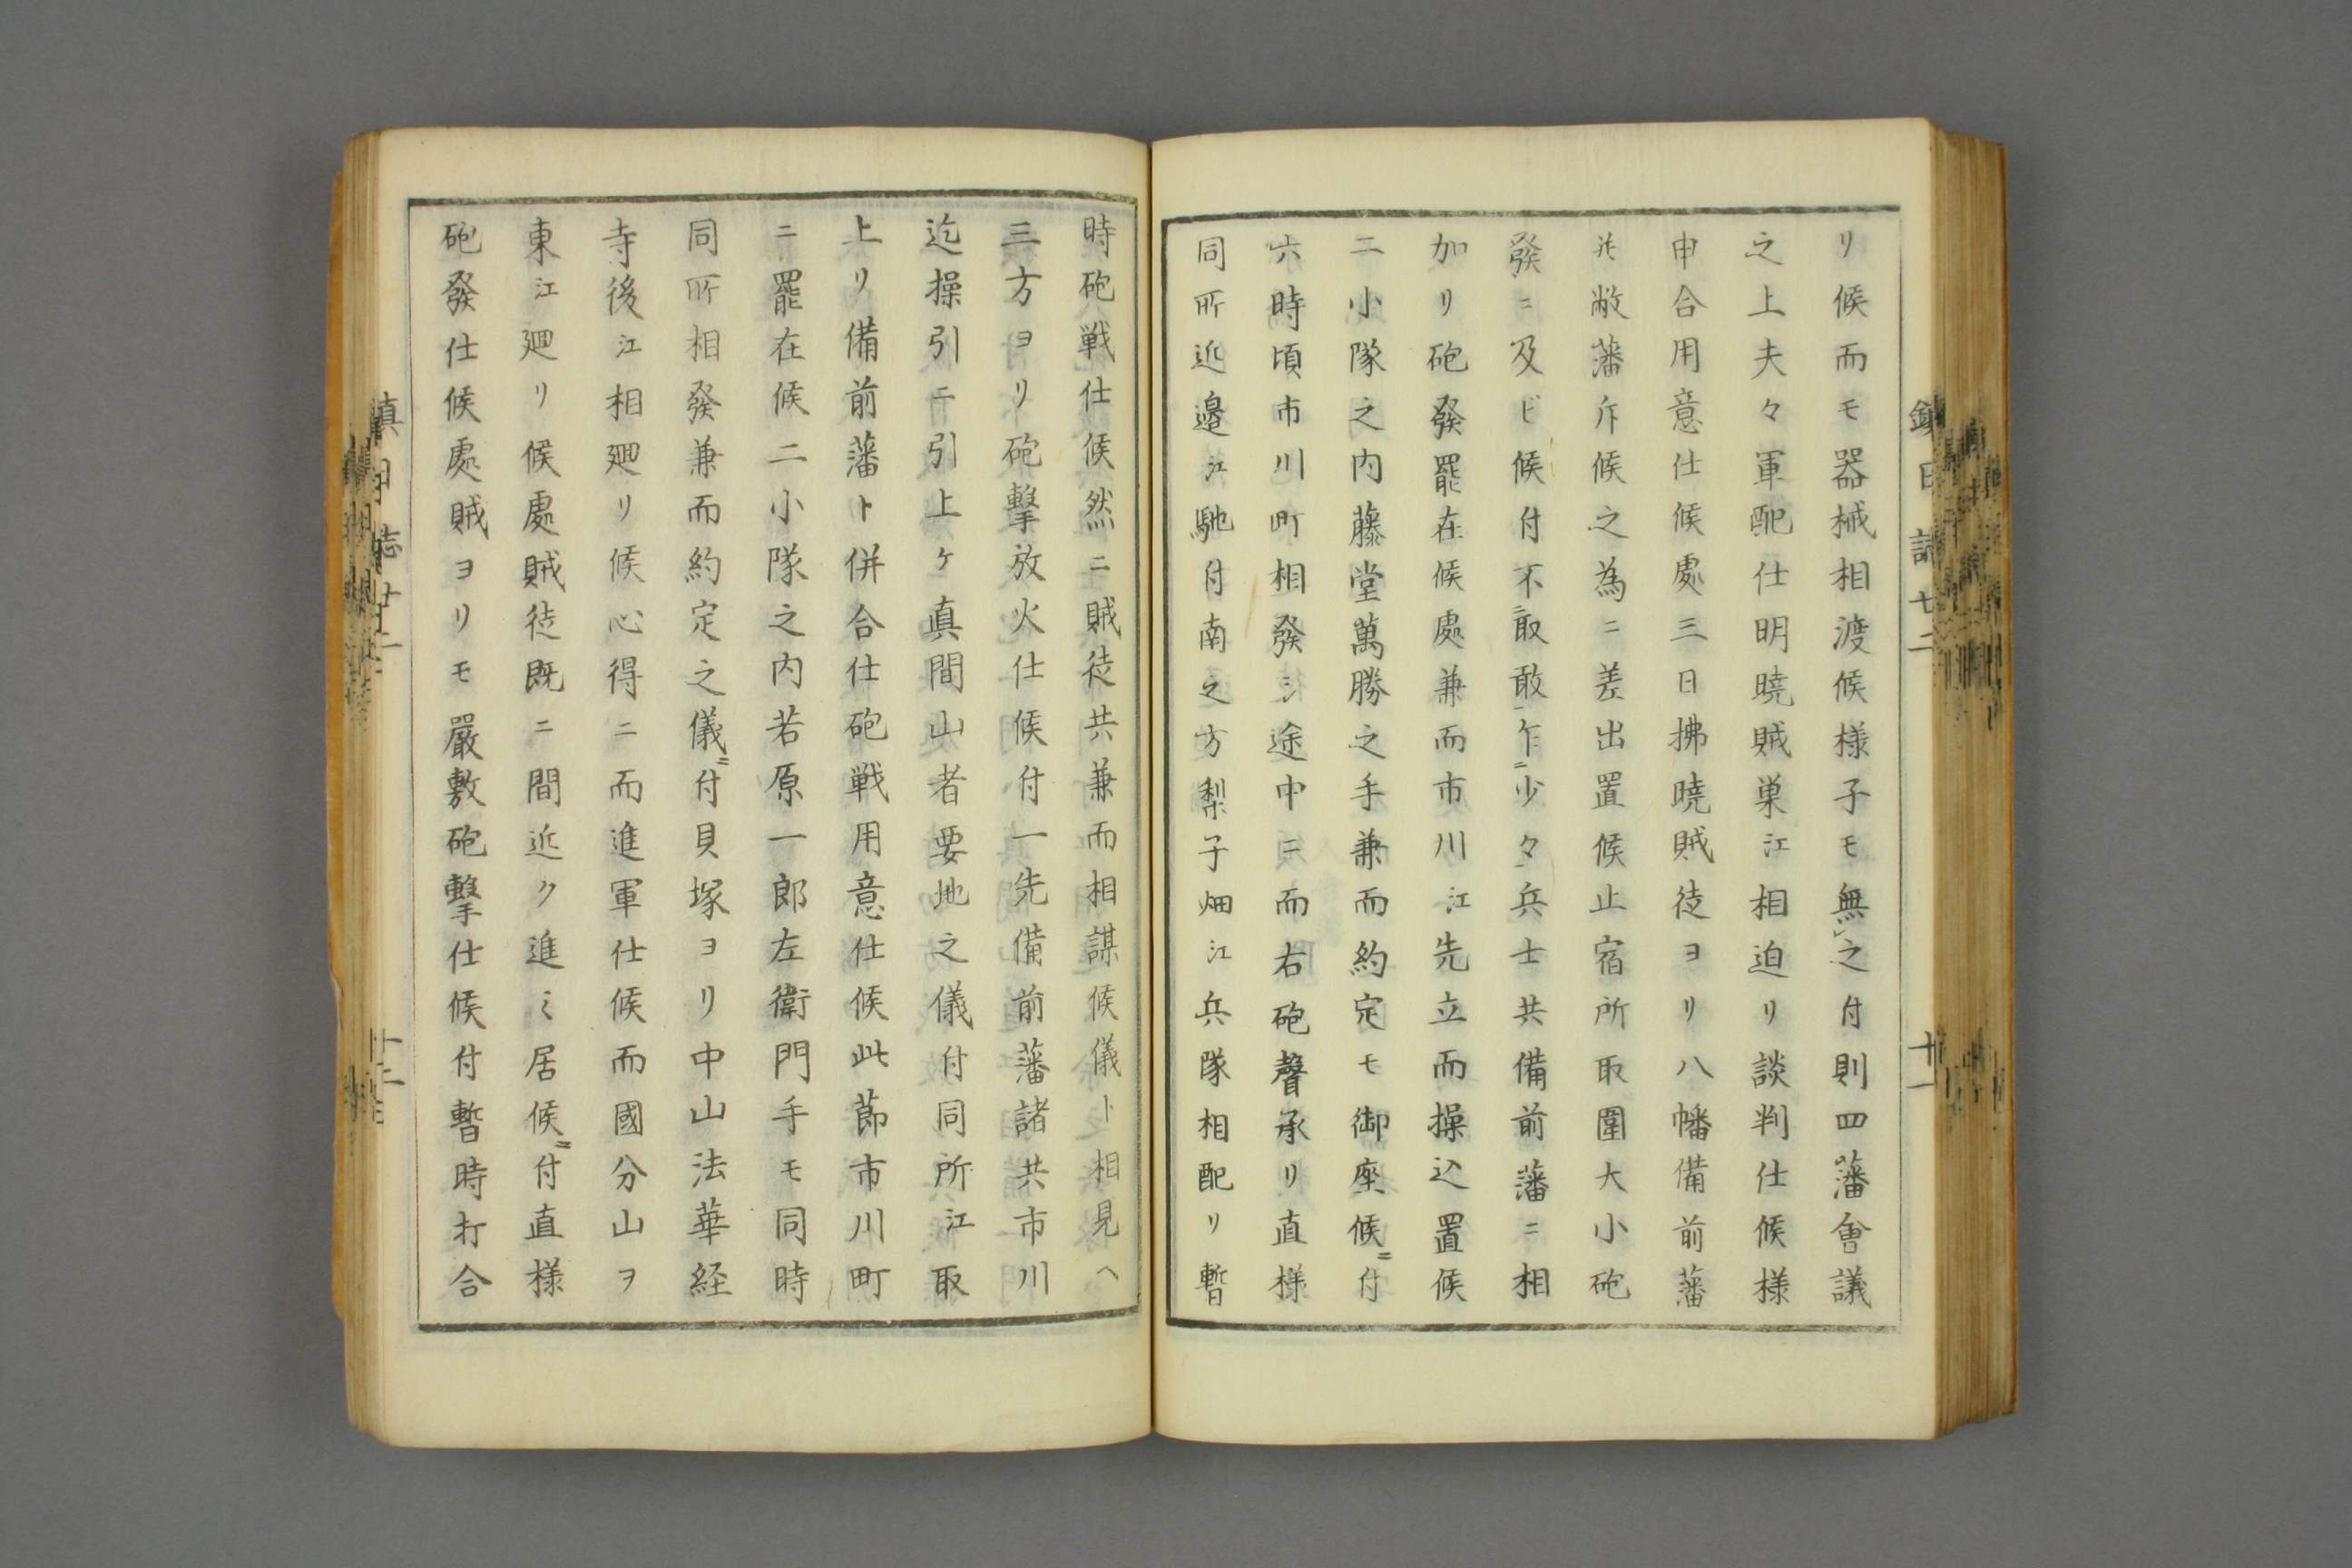 リ候而モ器械相渡候様子モ無之付則四藩會議
之上夫々軍配仕明曉賊巣江相迫リ談判仕候様
申合用意仕候處三日拂曉賊徒ヨリ八幡備前藩
幷敝藩斥候之為ニ差出置候止宿所取圍大小砲
發ニ及ビ候付不取敢乍少々兵士共備前藩ニ相
加リ砲發罷在候處兼而市川江先立而操込置候
二小隊之内藤堂萬勝之手兼而約定モ御座候ニ付
六時頃市川町相發シ途中ニ而右砲聲承リ直様
同所近邉江馳付南之方梨子畑江兵隊相配リ暫
時砲戦仕候然ニ賊徒共兼而相謀候儀ト相見ヘ
三方ヨリ砲撃放火仕候付一先備前藩諸共市川
迄操引ニ引上ケ真間山者要地之儀付同所江取
上リ備前藩ト併合仕砲戦用意仕候此節市川町
ニ罷在候二小隊之内若原一郎左衛門手モ同時
同所相發兼而約定之儀ニ付貝塚ヨリ中山法華経
寺後江相廻リ候心得ニ而進軍仕候而國分山ヲ
東江廻リ候處賊徒既ニ間近ク進ミ居候ニ付直様
砲發仕候處賊ヨリモ嚴敷砲撃仕候付暫時打合